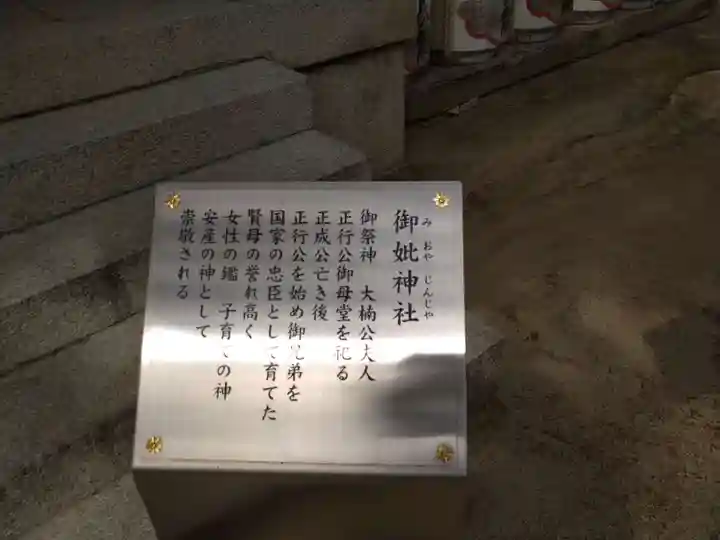 御妣神社
み おや じんじゃ
御祭神 大楠公夫人
正行公御母堂を祀る
正成公亡き後
正行公を始め御兄弟を
国家の忠臣として育てた
賢母の誉れ高く
女性の鑑 子育ての神
安産の神として
崇敬される